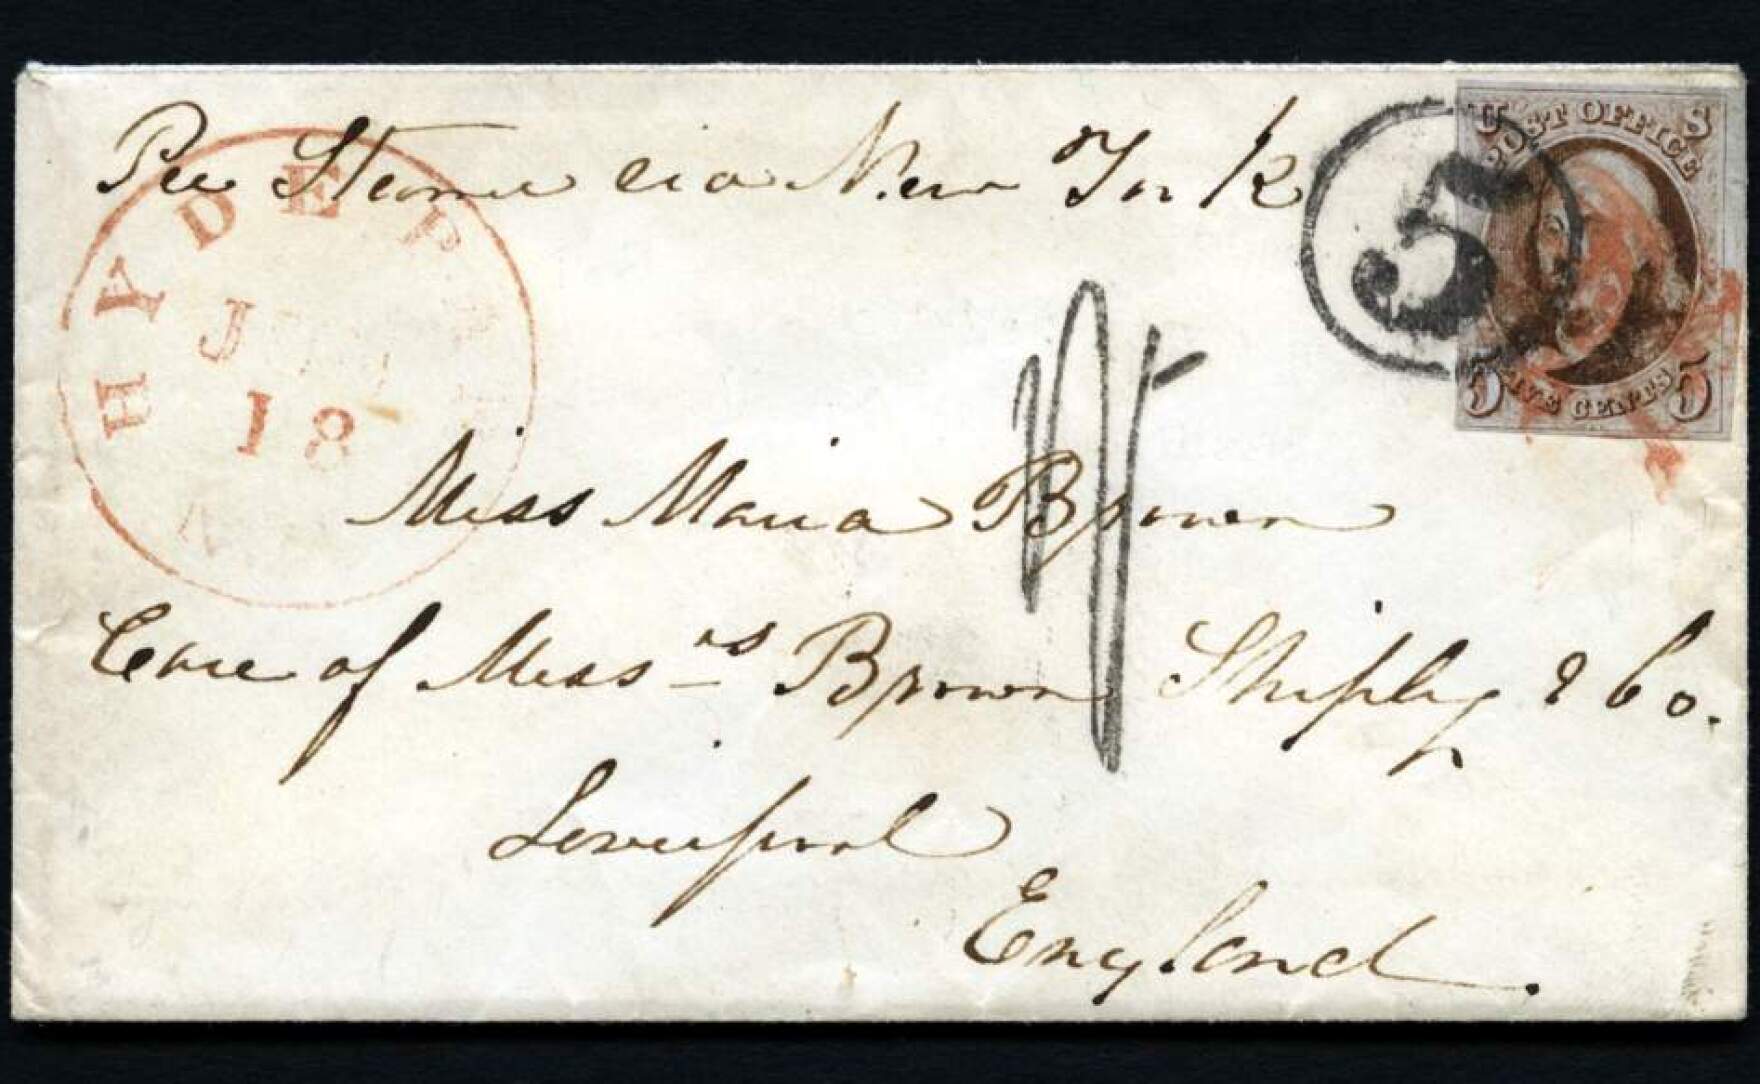 Per Steamer via New York
HYDEP
J
18
5
U S
POST OFFICE
5 FIVE CENTS 5
Miss Maria Brown
Care of Mess.rs Brown Shiply & Co.
Liverpool
England.